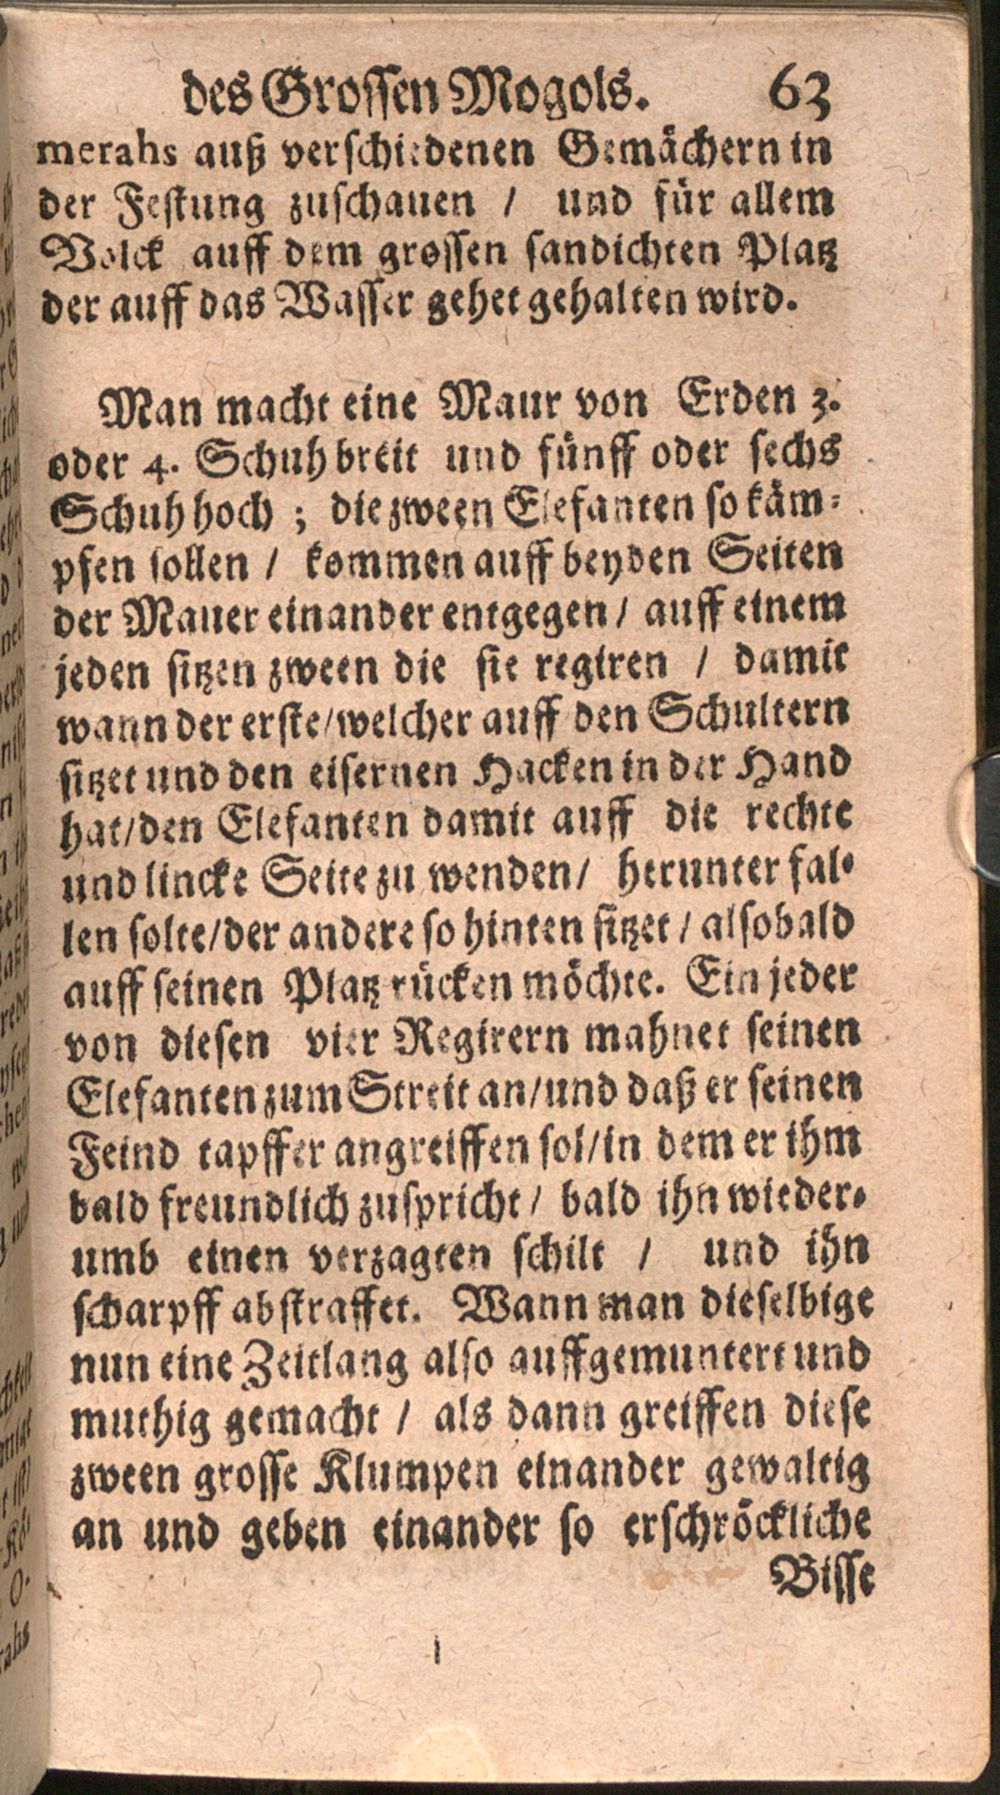 des Grossen Mogols. 63
merahs auß verschiedenen Gemächern in
der Festung zuschauen / und für allem
Volck auff dem grossen sandichten Platz
der auff das Wasser gehet gehalten wird.
Man macht eine Maur von Erden 3.
oder 4. Schuh breit und fünff oder sechs
Schuh hoch ; die zween Elefanten so käm-
pfen sollen / kommen auff beyden Seiten
der Mauer einander entgegen / auff einem
jeden sitzen zween die sie regiren / damit
wann der erste / welcher auff den Schultern
sitzet und den eisernen Hacken in der Hand
hat / den Elefanten damit auff die rechte
und lincke Seite zu wenden / herunter fal-
len solte / der andere so hinten sitzet / alsobald
auff seinen Platz rücken möchte. Ein jeder
von diesen vier Regirern mahnet seinen
Elefanten zum Streit an / und daß er seinen
Feind tapffer angreiffen sol / in dem er ihm
bald freundlich zuspricht / bald ihn wieder-
umb einen verzagten schilt / und ihn
scharpff abstraffet. Wann man dieselbige
nun eine Zeitlang also auffgemuntert und
muthig gemacht / als dann greiffen diese
zween grosse Klumpen einander gewaltig
an und geben einander so erschröckliche
Bisse